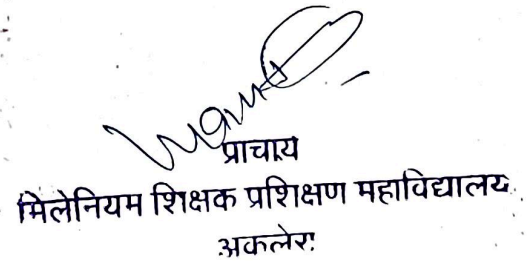 प्राचाय
मिलेनियम शिक्षक प्रशिक्षण महाविद्यालय
अकलेरा